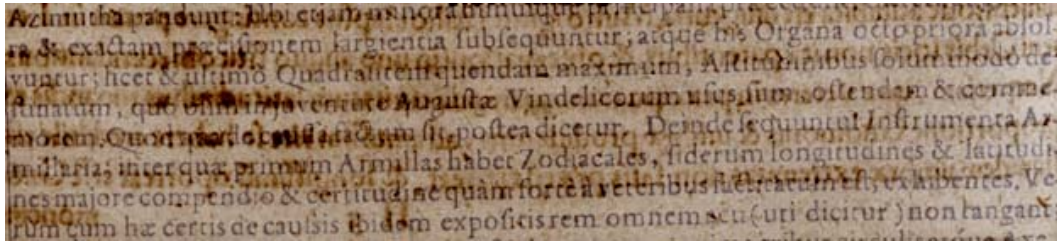 Azimutha pandunt: hinc etiam minora
ra & exactam præcisionem largientia subsequuntur; atque his Organa octo priora absol
vuntur; licet & ultimo Quadrantem quendam maximum, Altitudinibus solummodo de-
stinatum, quo olim in juventute Augustæ Vindelicorum usus sum, ostendam & comme-
morem. Quod qua de caussa factum sit, postea dicetur. Deinde sequuntur Instrumenta Ar
millaria; inter quæ primum Armillas habet Zodiacales, siderum longitudines & latitudi-
nes majore compendio & certitudine quàm fortè à veteribus factitatum est, exhibentes. Ve
rum cum hæ certis de caussis ibidem expositis rem omnem acu (uti dicitur) non tangant